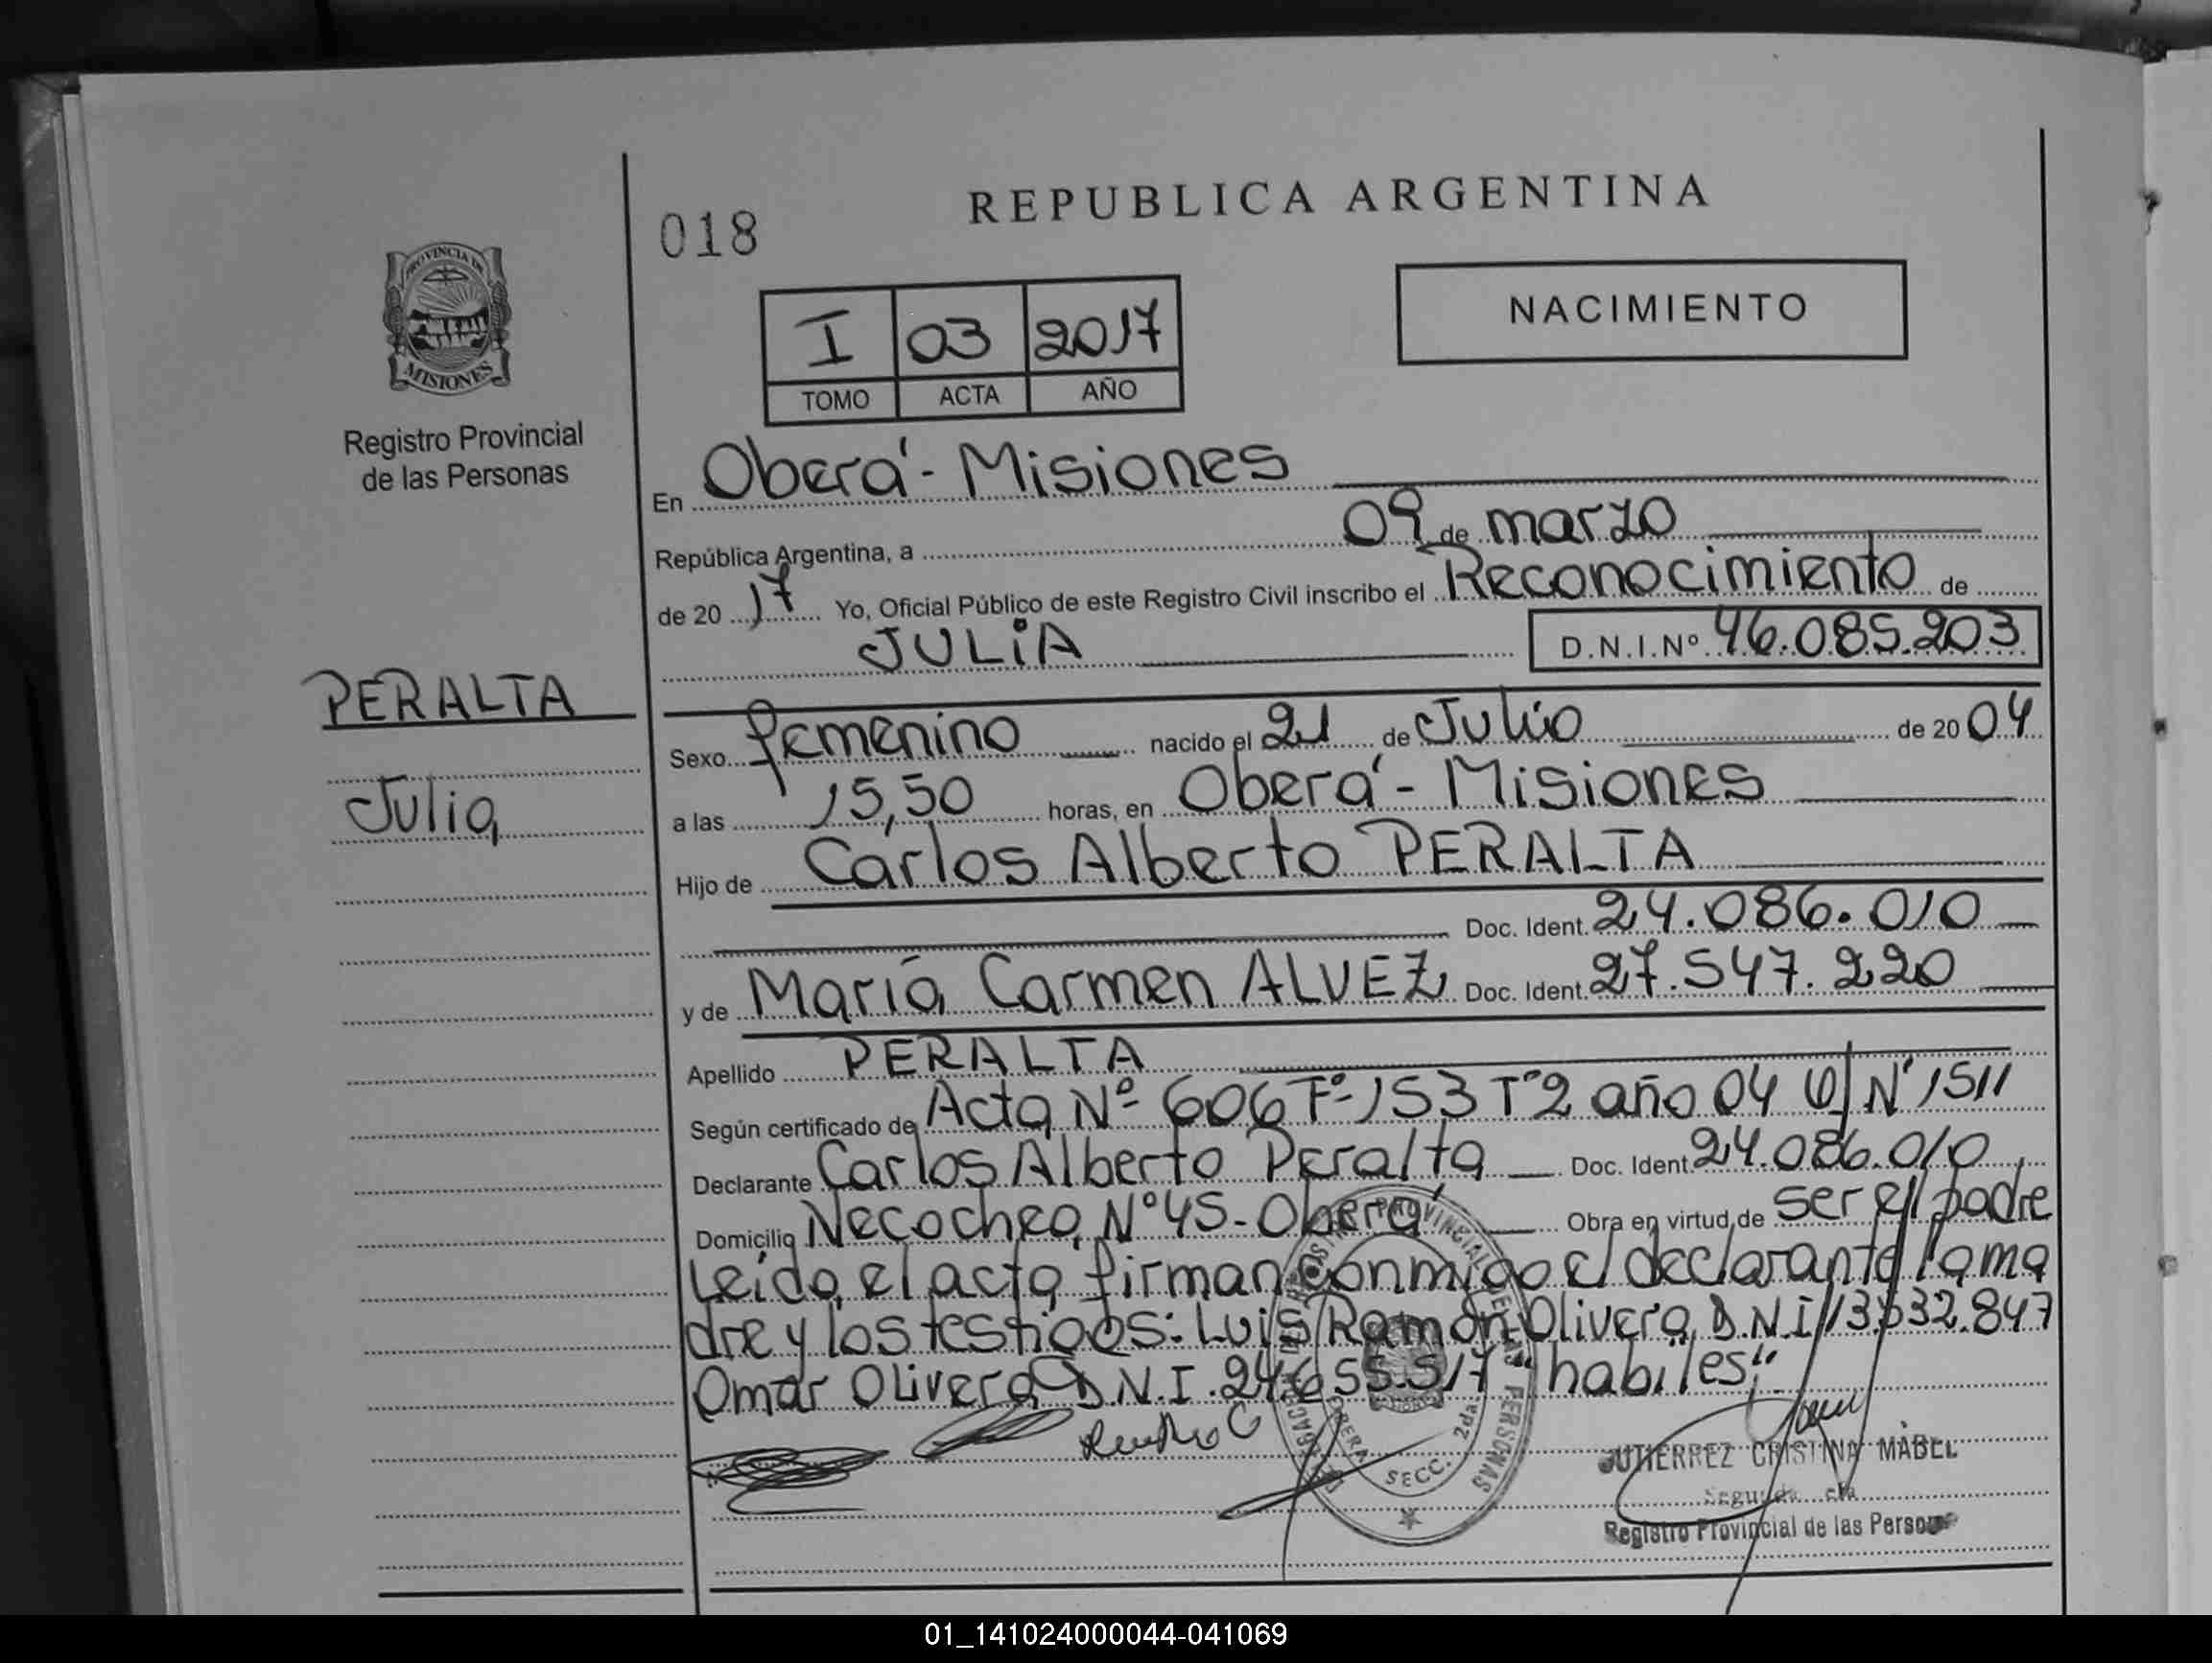 REPUBLICA ARGENTINA
018
NACIMIENTO
PROVINCIA DE
MISIONES
Registro Provincial
de las Personas
I 03 2017
TOMO ACTA AÑO
En Oberá - Misiones
República Argentina, a 09 de marzo
de 20 17 Yo, Oficial Público de este Registro Civil inscribo el Reconocimiento de
JULIA D.N.I.Nº 46.085.203
PERALTA
Julia
Sexo femenino nacido el 21 de Julio de 20 04
a las 15,50 horas, en Oberá - Misiones
Hijo de Carlos Alberto PERALTA
Doc. Ident. 24.086.010
y de María Carmen ALVEZ Doc. Ident. 27.547.220
Apellido PERALTA
Según certificado de Acta Nº 606 Fº 153 Tº 2 año 04 Nº 1511
Declarante Carlos Alberto Peralta Doc. Ident. 24.086.010
Domicilio Necochea Nº 45 - Oberá Obra en virtud de ser el padre
Leída el acta firman conmigo el declarante la ma
dre y los testigos: Luis Ramón Olivera D.N.I 13.532.847
Omar Olivera D.N.I. 24.655.517 "habiles"
REGISTRO PROVINCIAL DE LAS PERSONAS
OBERA SECC. 2da.
GUTIERREZ CRISTINA MABEL
Registro Provincial de las Personas
01_141024000044-041069